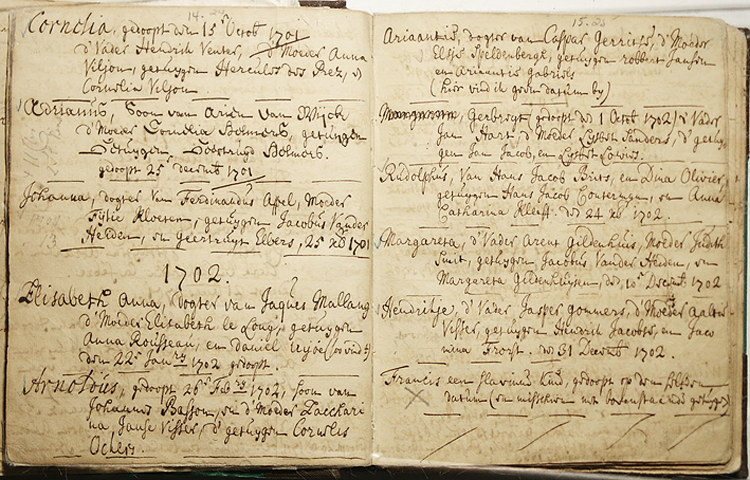 14. 24.
Cornelia, gedoopt den 15 Octob 1701
d'Vader Hendrik Venter, d'Moeder Anna
Viljon, getuygen Hercules des Prez, en
Cornelia Viljon
Adrianus, Soon van Arien van Wijck
d'Moeder Cornelia Helmers, getuygen
Getuygen
gedoopt 25 decemb 1701
Johanna, dogter van Ferdinandus Appel, Moeder
Kloeten, getuygen Jacobus Vander
Heiden, en Geertruyt Elbers, 25 xb 1701
1702.
Elisabeth Anna, dogter van Jaques Mallang
d'Moeder Elisabeth le Long, getuygen
Anna Rousseau, en Daniel
den 22 Jan 1702 gedoopt.
Arnoldus, gedoopt 26 Feb 1702, soon van
Johannes Basson, en d'Moeder Zacchari
na, Janse Visser, d'getuygen Cornelis
Ockers.
15. 25
Ariaantis, dogter van Casper Gerrits, d'Moeder
Eltje Speldenberge, getuygen robbert Jansen
en Ariaantis Gabriels
(hier vind ik geen datum by)
Gerbregt (gedoopt den 1 Octob 1702) d'Vader
Jan Hart, d'Moeder Lysbet Sanders, d'getuy-
gen Jan Jacob, en Lysbet Lowies.
Rudolphus, van Hans Jacob Biets, en Dina Olivier,
getuygen Hans Jacob Conterman, en Anna
Catharina Kleeft. den 24 xb 1702.
Margareta, d'Vader Arent Gildenhuis, Moeder Judith
Smit, getuygen Jacobus Vander Heiden, en
Margareta Gildenhuysen, den 10 Decemb. 1702
Hendrikje, d'Vader Jasper Gommers, d'Moeder Aaltje
Visser, getuygen Hendrik Jacobs, en Jaco
mina Frorst. den 31 Decemb 1702.
Francis een slavinne kind, gedoopt op den selfden
datum (en misschien met bovenstaande getuygen)